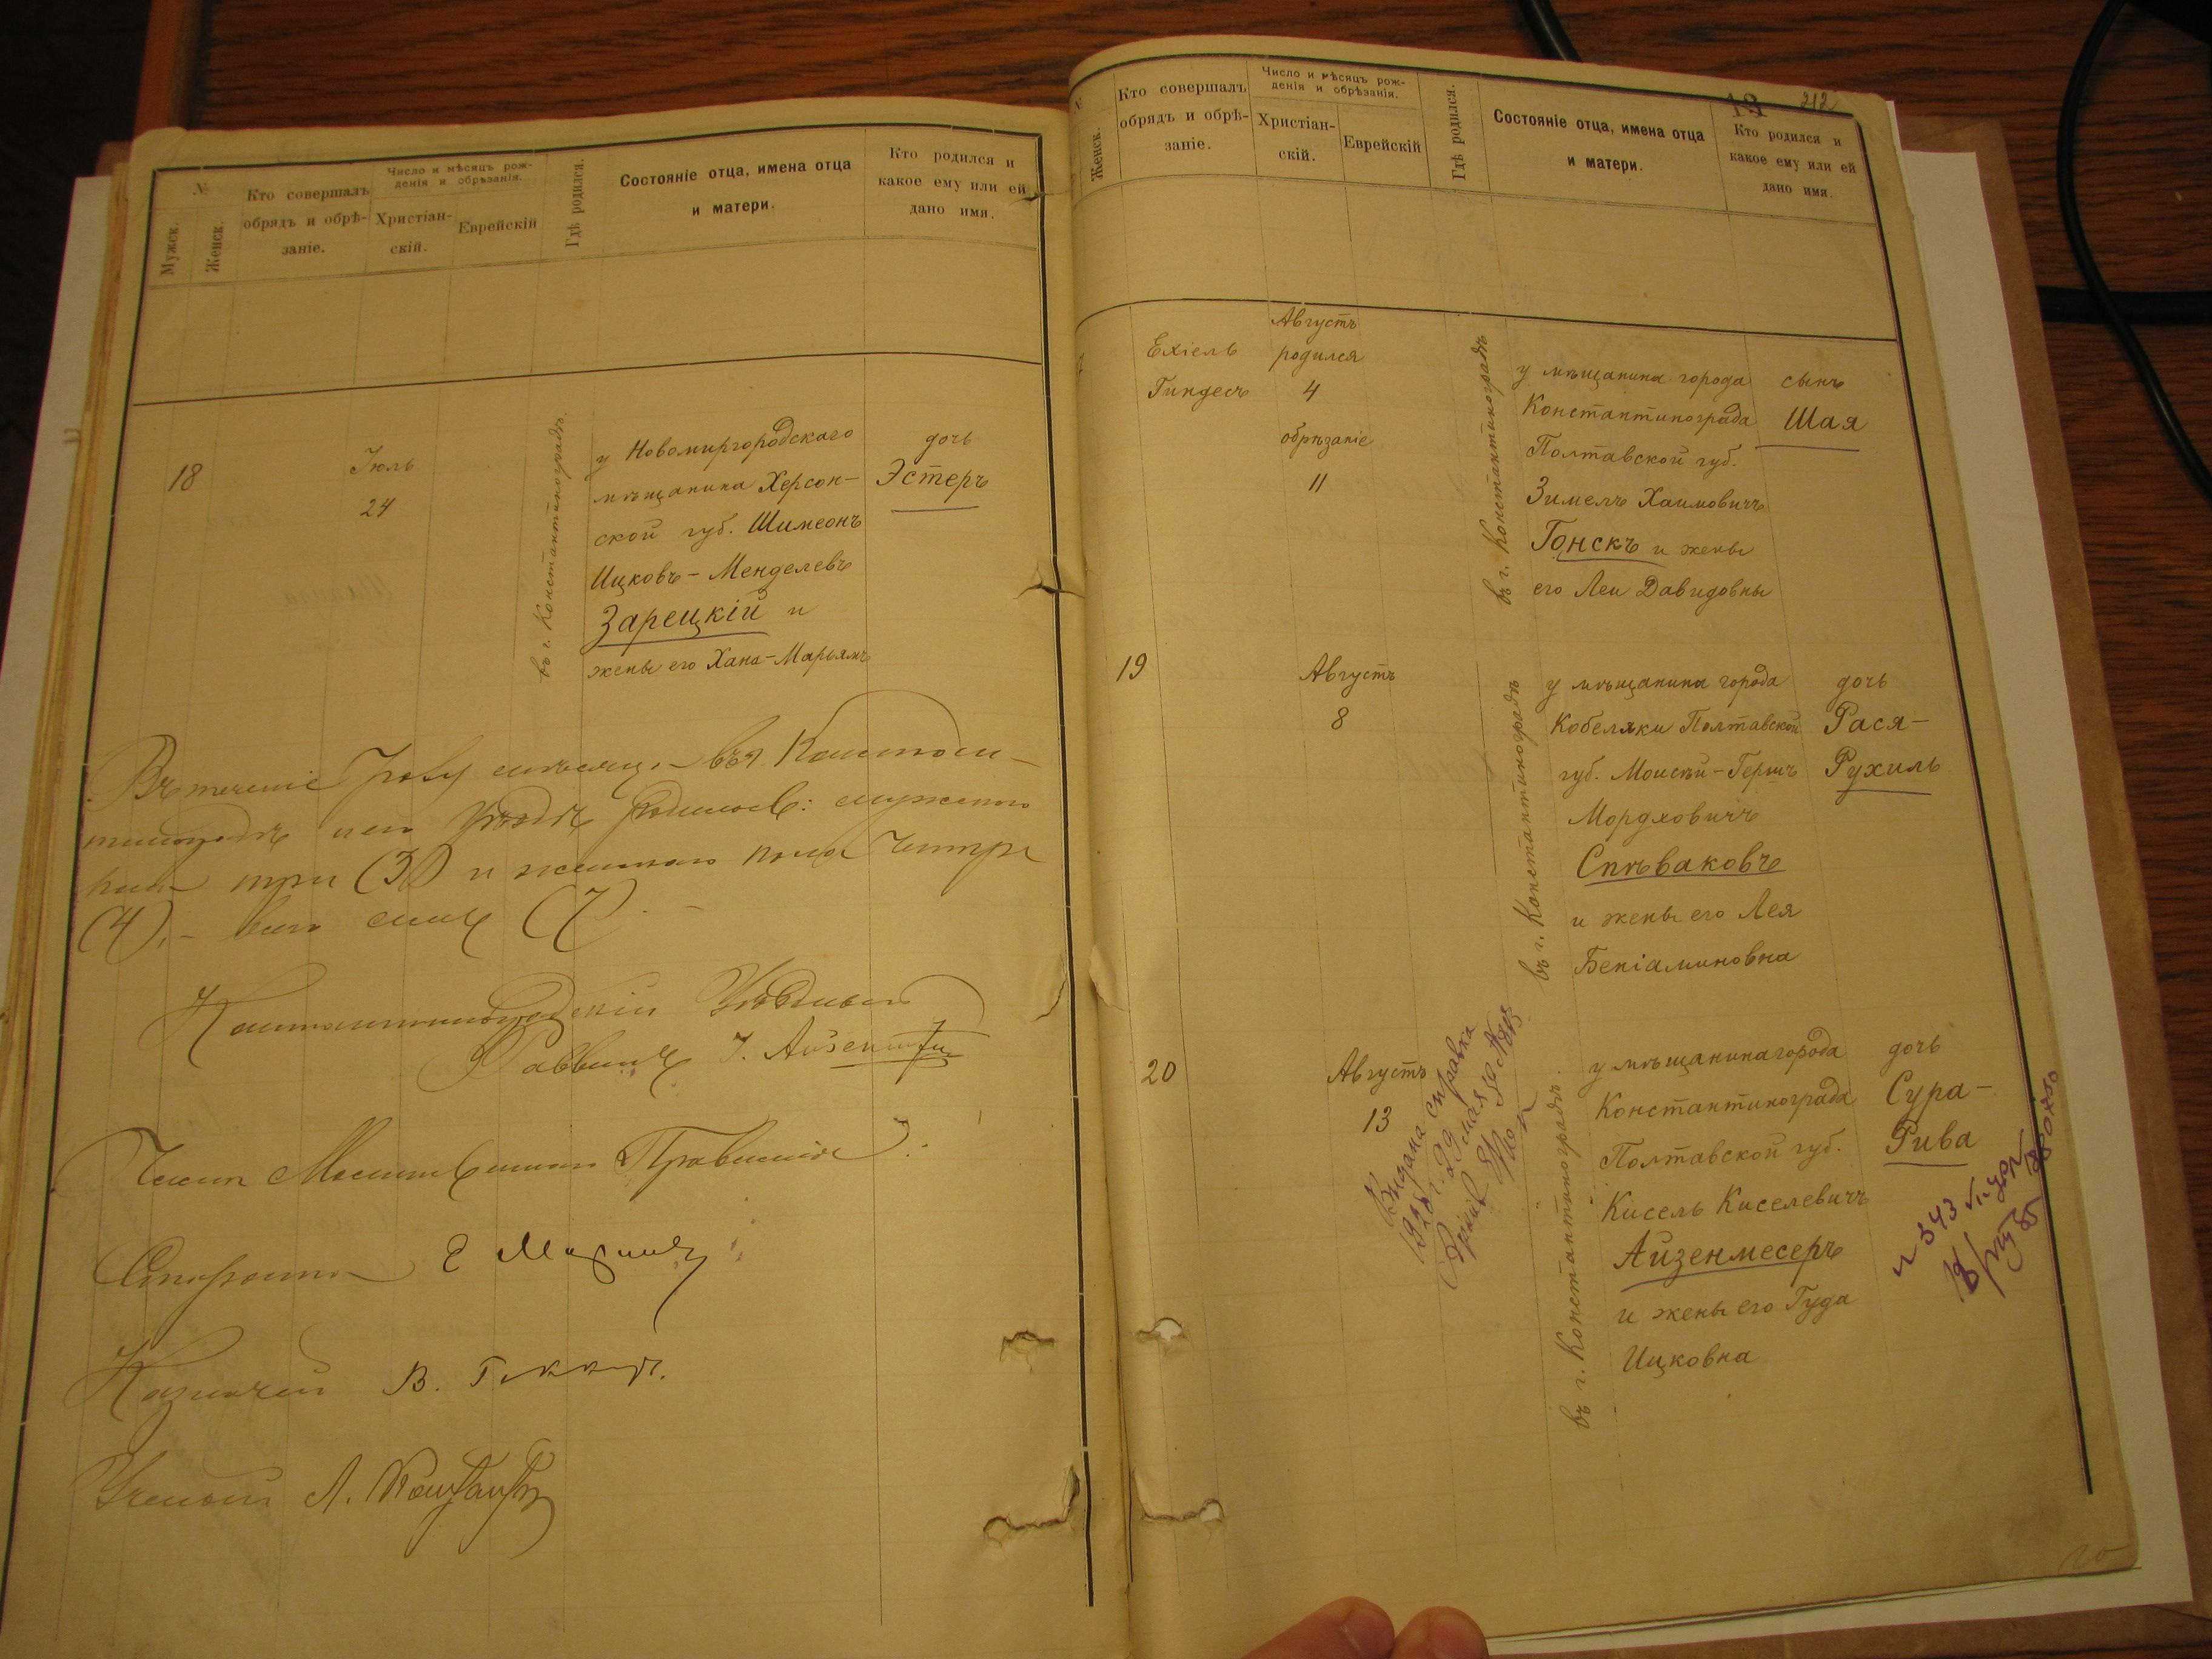 №
Мужск.
Женск.
Кто совершалъ
обрядъ и обрѣ-
заніе.
Число и мѣсяцъ рож-
денія и обрѣзанія.
Христіан-
скій.
Еврейскій
Гдѣ родился.
Состояніе отца, имена отца
и матери.
Кто родился и
какое ему или ей
дано имя.
18
Іюль
24
въ г. Константиноградѣ
у Новомиргородскаго
мѣщанина Херсон-
ской губ. Шимеонъ
Ицковъ-Менделевъ
Зарецкій и
жены его Хана-Марьямъ
дочь
Эстеръ
Въ теченіе
родилось: мужского
три (3) и женскаго пола четыре
(4), - всего семь (7). -
Константиноградскій Уѣздный
Раввинъ
Члены Молитвеннаго Правленія:
Староста Е
Казначей В.
Ученый Л.
212
№
Женск.
Кто совершалъ
обрядъ и обрѣ-
заніе.
Число и мѣсяцъ рож-
денія и обрѣзанія.
Христіан-
скій.
Еврейскій
Гдѣ родился.
Состояніе отца, имена отца
и матери.
Кто родился и
какое ему или ей
дано имя.
Ехіель
Гиндесъ
Августъ
родился
4
обрѣзаніе
11
въ г. Константиноградѣ
у мѣщанина города
Константинограда
Полтавской губ.
Зимелъ Хаимовичъ
Гонскъ и жены
его Леи Давидовны
сынъ
Шая
19
Августъ
8
въ г. Константиноградѣ
у мѣщанина города
Кобеляки Полтавской
губ. Моисѣй-Гершъ
Мордховичъ
Спѣваковъ
и жены его Лея
Беніаминовна
дочь
Рася-
Рухиль
20
Августъ
13
Видана справка
29 мая
въ г. Константиноградѣ.
у мѣщанина города
Константинограда
Полтавской губ.
Кисель Киселевичъ
Айзенмесеръ
и жены его Гуда
Ицковна
дочь
Сура-
Рива